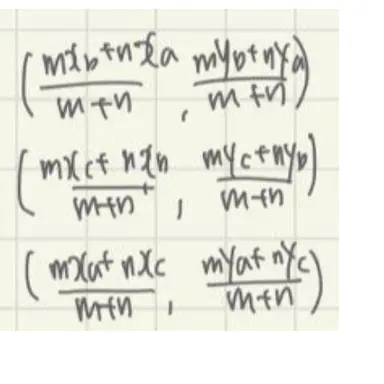 (mx_b+nx_a/m+n, my_b+ny_a/m+n)
(mx_c+nx_b/m+n, my_c+ny_b/m+n)
(mx_a+nx_c/m+n, my_a+ny_c/m+n)